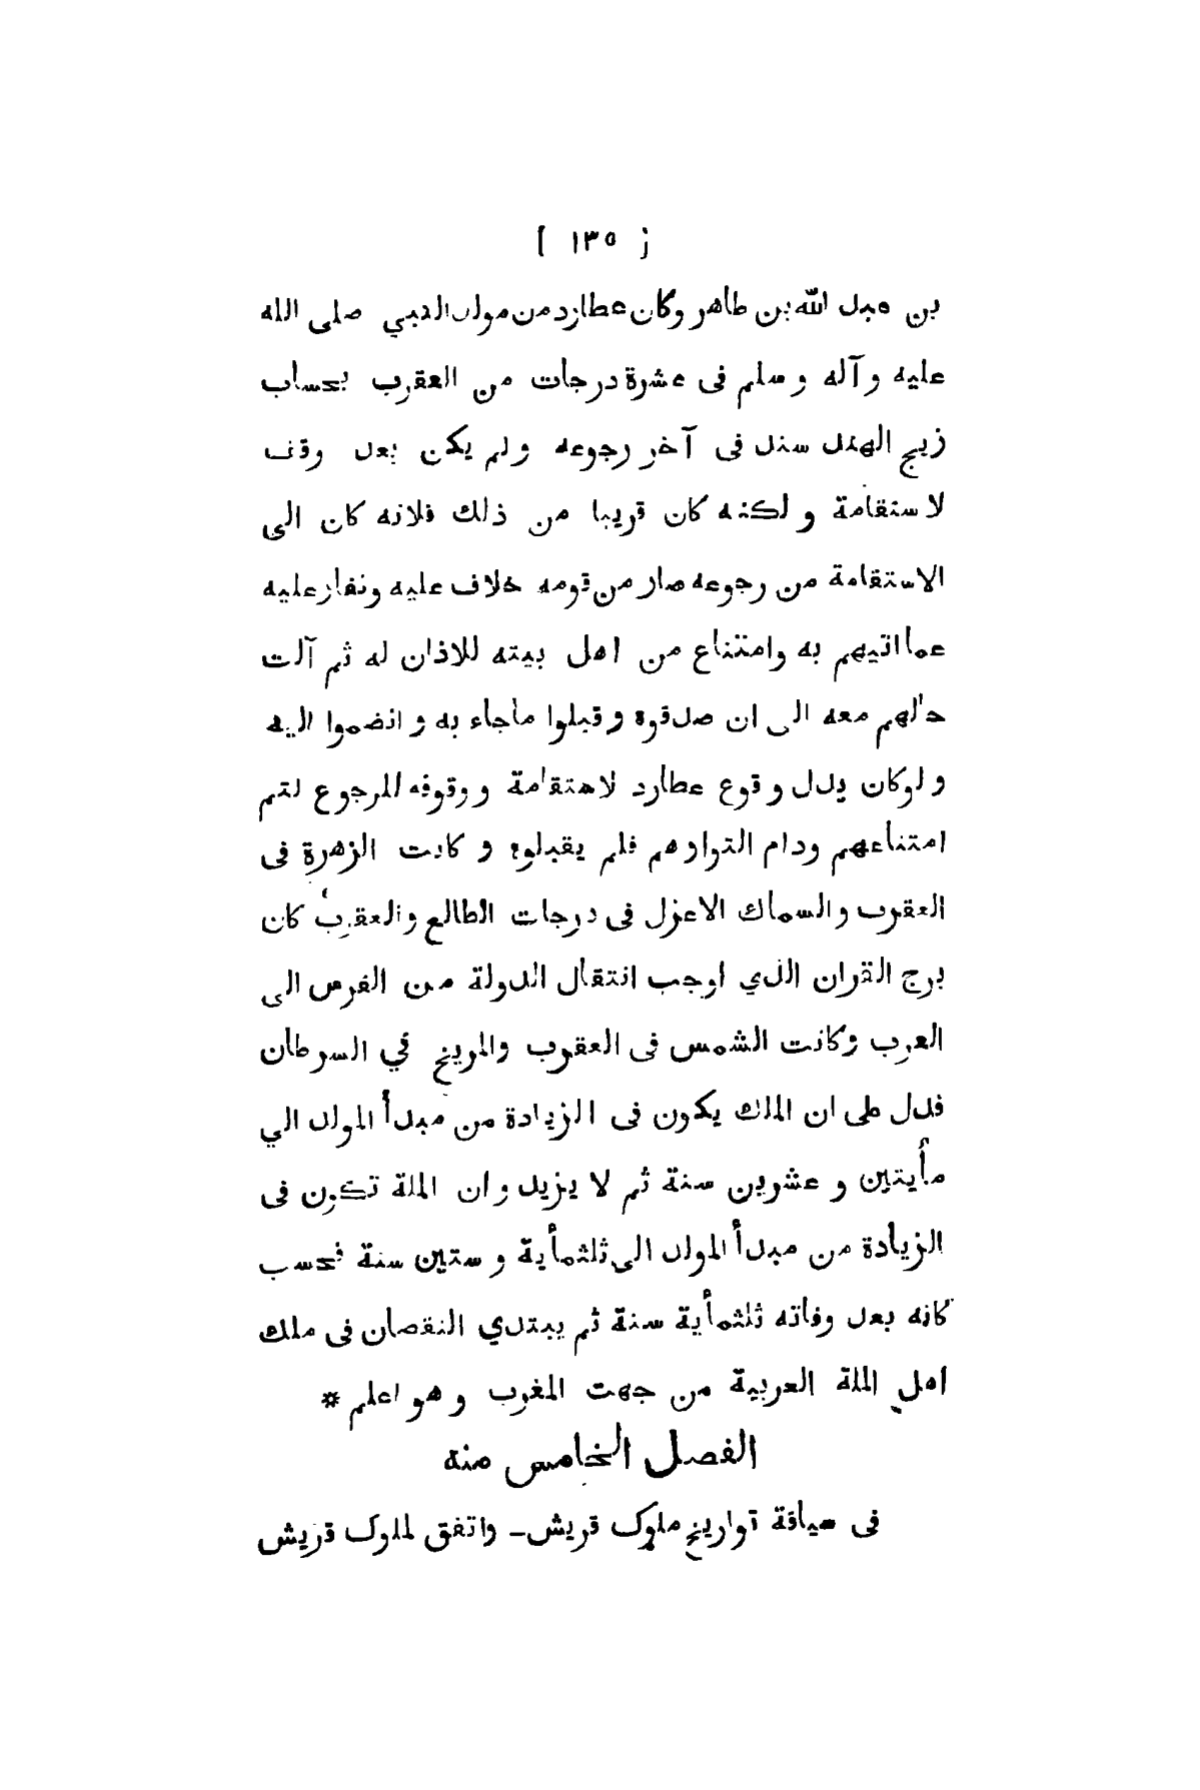 [ ١٣٥ ]
بن عبد الله بن طاهر وكان عطارد من مولد النبي صلى الله
عليه وآله وسلم فى عشرة درجات من العقرب بحساب
زيج الهند سند فى آخر رجوعه ولم يكن بعد وقف
لاستقامة ولكنه كان قريبا من ذلك فلانه كان الى
الاستقامة من رجوعه صار من قومه خلاف عليه ونفار عليه
عما اتيهم به وامتناع من اهل بيته للاذان له ثم آلت
حالهم معه الى ان صدقوه وقبلوا ماجاء به وانضموا اليه
ولوكان يدل وقوع عطارد لاستقامة ووقوفه للرجوع لتم
امتناعهم ودام التواوهم فلم يقبلوه وكانت الزهرة فى
العقرب والسماك الاعزل فى درجات الطالع والعقرب كان
برج القران الذي اوجب انتقال الدولة من الفرس الى
العرب وكانت الشمس فى العقرب والمريخ في السرطان
فدل على ان الملك يكون فى الزيادة من مبدأ المولد الي
مأيتين وعشرين سنة ثم لا يزيد وان الملة تكون فى
الزيادة من مبدأ المولد الى ثلثمأية وستين سنة فحسب
كانه بعد وفاته ثلثمأية سنة ثم يبتدي النقصان فى ملك
اهل الملة العربية من جهت المغرب وهو اعلم *
الفصل الخامس منه
فى سياقة تواريخ ملوك قريش – واتفق لملوك قريش